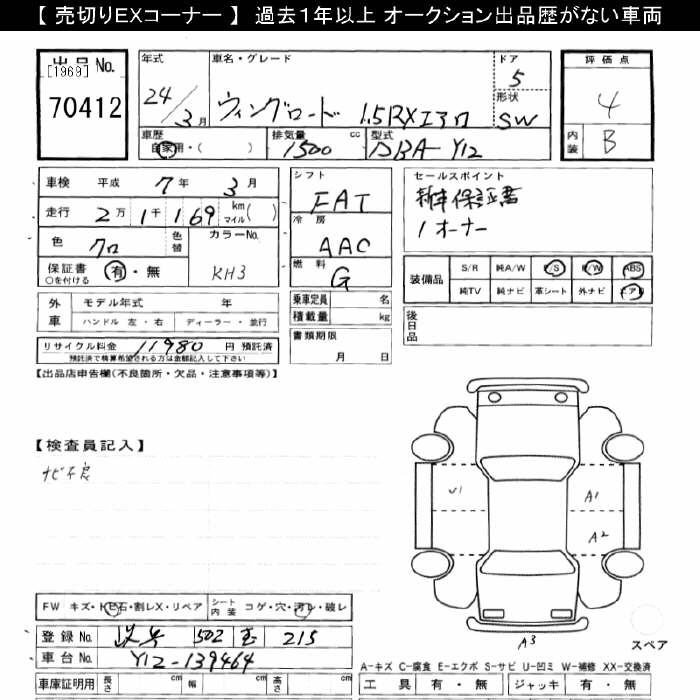 【 売切りEXコーナー 】 過去１年以上 オークション出品歴がない車両
出品No.
[1969]
70412
年式
24/3月
車名・グレード
ウィングロード 1.5RXエアロ
ドア
5
形状
SW
評価点
4
内装
B
車歴
自家用・( )
排気量
1500
cc
型式
DBA-Y12
車検 平成 7年 3月
走行 2万1千169 km マイル( )
色
クロ
色替
カラーNo.
KH3
保証書
○を付ける
有・無
外車
モデル年式 年
ハンドル 左・右 ディーラー・並行
リサイクル料金 11980 円 預託済
預託済で検算希望される方は金額記入して下さい
シフト
FAT
冷房
AAC
燃料
G
乗車定員 名
積載量 kg
書類期限
月 日
セールスポイント
新車保証書
1オーナー
装備品
S/R 純A/W P/S P/W ABS
純TV 純ナビ 革シート 外ナビ エアB
後日品
【出品店申告欄(不良箇所・欠品・注意事項等)】
【検査員記入】
ナビ不良
U1
A1
A2
A3
スペア
FW キズ・トビ石・割レX・リペア
シート内装 コゲ・穴・汚レ・破レ
登録No. 502 215
車台No. Y12-139464
車庫証明用 長さ cm 幅 cm 高さ cm
A-キズ C-腐食 E-エクボ S-サビ U-凹ミ W-補修 XX-交換済
工具 有・無 ジャッキ 有・無